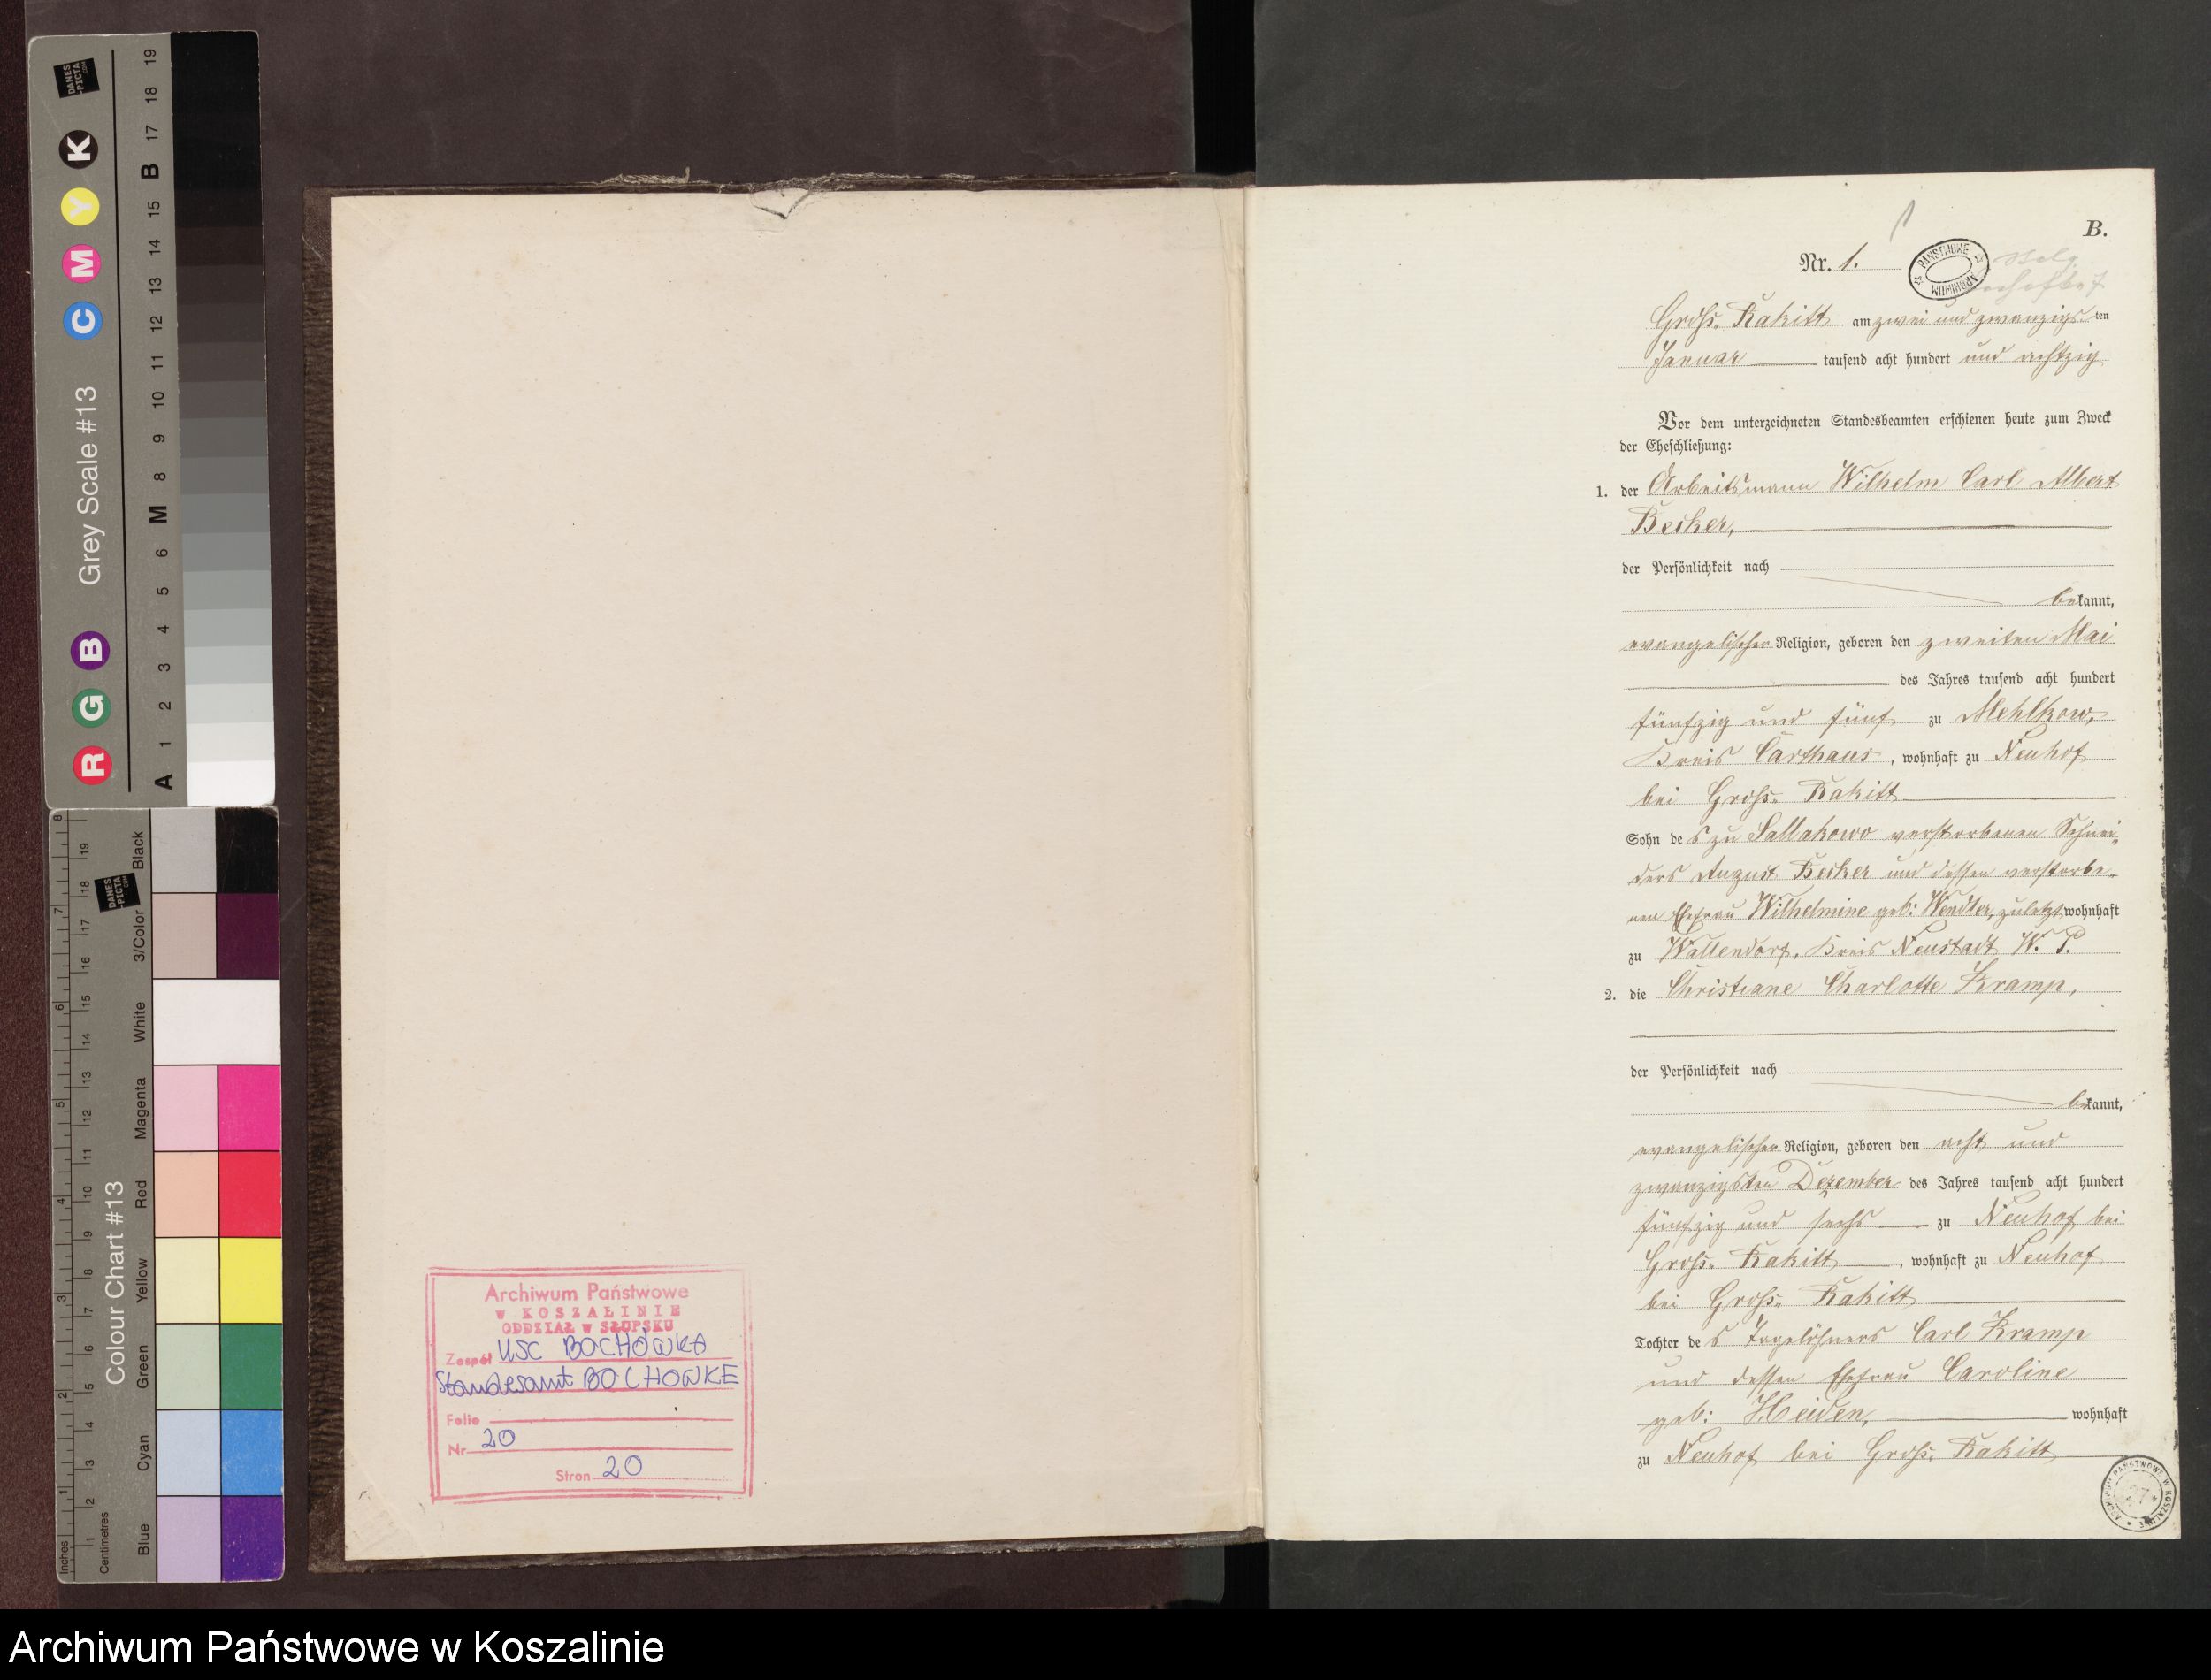 DANES
-PICTA
.COM
Grey Scale #13
R G B C M Y K
A 1 2 3 4 5 6 M 8 9 10 11 12 13 14 15 B 17 18 19
Colour Chart #13
DANES
-PICTA
.COM
Blue Cyan Green Yellow Red Magenta White 3/Color Black
Inches 1 2 3 4 5 6 7 8
Centimetres 1 2 3 4 5 6 7 8 9 10 11 12 13 14 15 16 17 18 19
Archiwum Państwowe
W KOSZALINIE
ODDZIAŁ W SŁUPSKU
Zespół USC BOCHÓWKA
Standesamt BOCHOWKE
Folio
Nr 20
Stron 20
B.
Nr. 1.
PAŃSTWOWE ARCHIWUM
Groß-Rakitt am zwei und zwanzigsten
Januar tausend acht hundert und achtzig
Vor dem unterzeichneten Standesbeamten erschienen heute zum Zweck
der Eheschließung:
1. der Arbeitsmann Wilhelm Carl Albert
Becker,
der Persönlichkeit nach
bekannt,
evangelischer Religion, geboren den zweiten Mai
des Jahres tausend acht hundert
fünfzig und fünf zu Mehlkow,
Kreis Carthaus, wohnhaft zu Neuhof
bei Groß-Rakitt
Sohn des zu Sallakowo verstorbenen Schnei-
ders August Becker und dessen verstorbe-
nen Ehefrau Wilhelmine geb: Wendler, zuletzt wohnhaft
zu Wallendorf, Kreis Neustadt W. P.
2. die Christiane Charlotte Kramp,
der Persönlichkeit nach
bekannt,
evangelischer Religion, geboren den acht und
zwanzigsten Dezember des Jahres tausend acht hundert
fünfzig und sechs zu Neuhof bei
Groß-Rakitt, wohnhaft zu Neuhof
bei Groß-Rakitt
Tochter des Tagelöhners Carl Kramp
und dessen Ehefrau Caroline
geb: Heiden, wohnhaft
zu Neuhof bei Groß-Rakitt
ARCHIWUM PAŃSTWOWE W KOSZALINIE
27
Archiwum Państwowe w Koszalinie